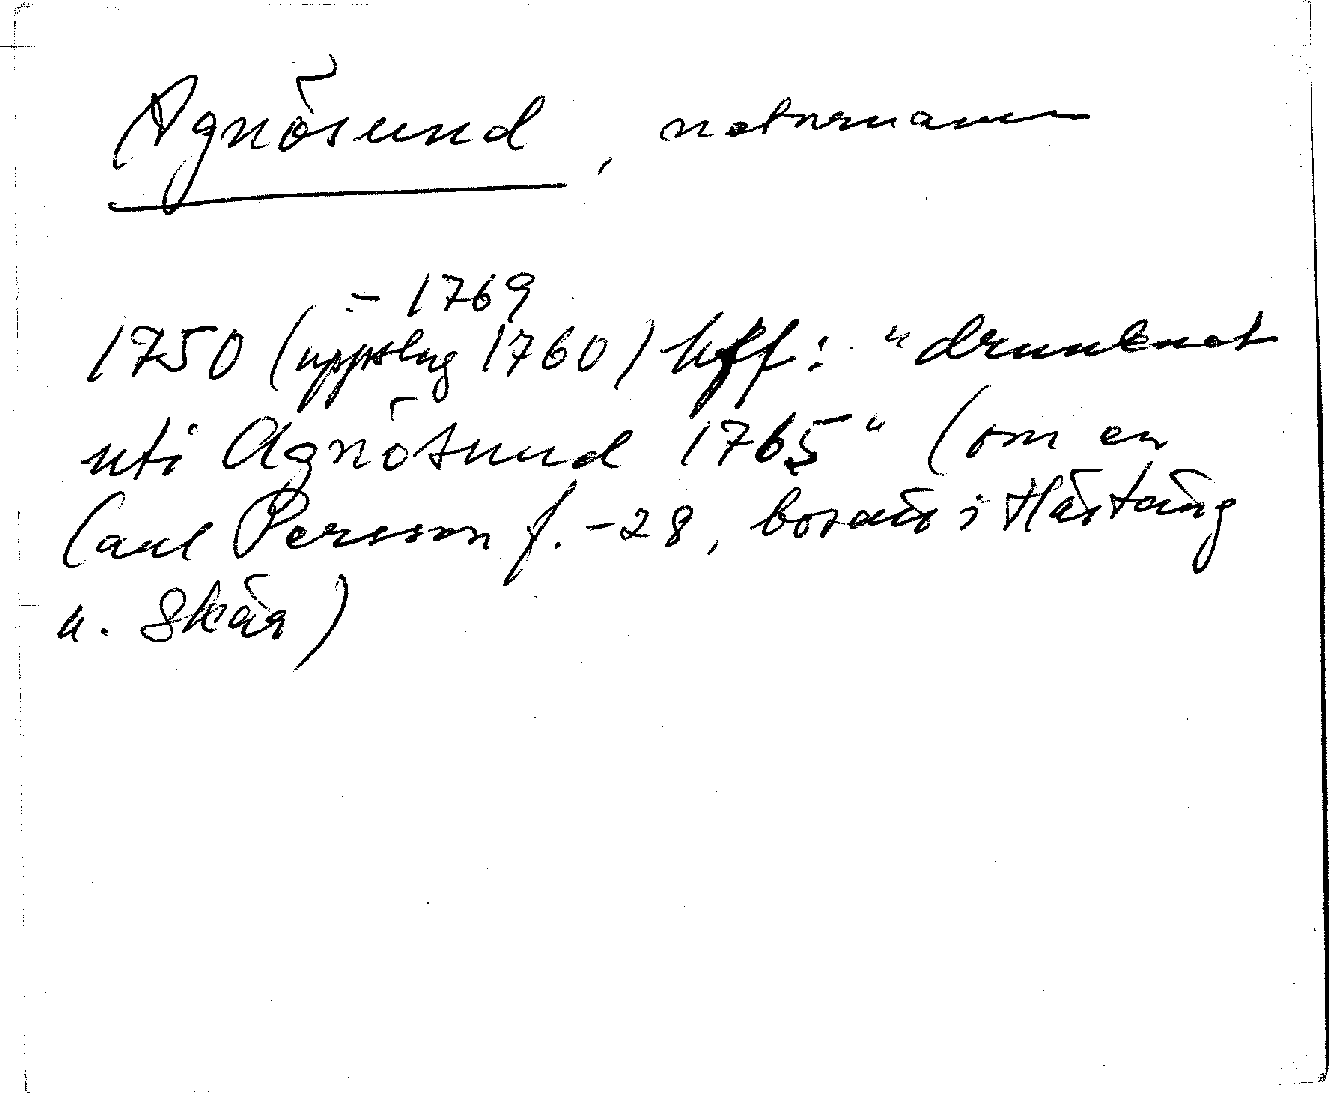 Agnösund, naturnamn
- 1769
1750 (uppslag 1760) hff: "drunknat
uti Agnösund 1765" (om en
Carl Persson f. -28, bosatt i Hästäng
u. Skär)